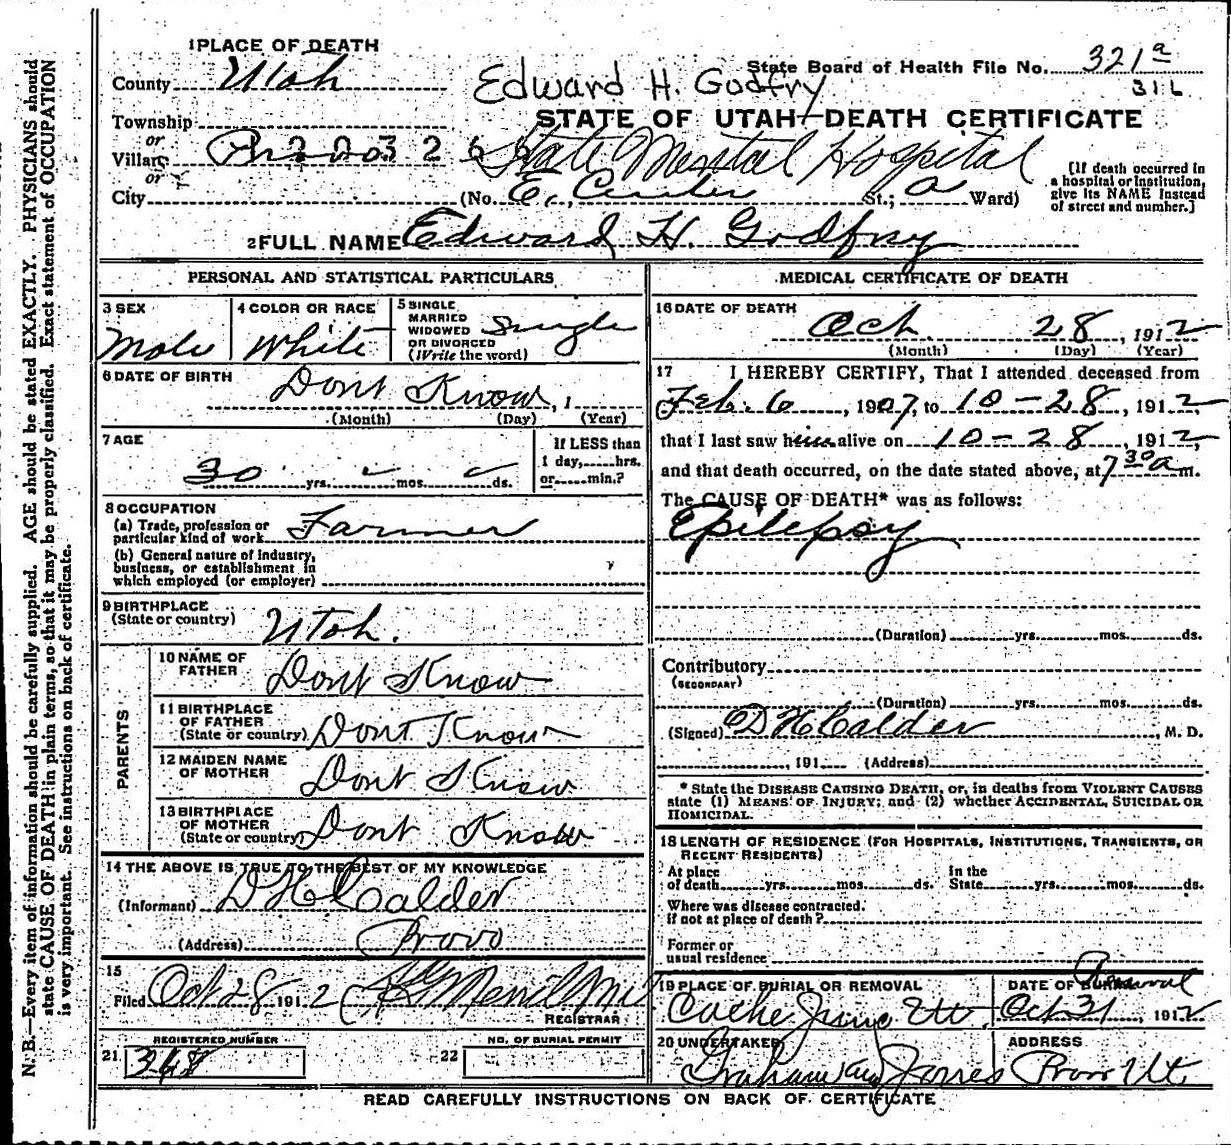 1 PLACE OF DEATH
State Board of Health File No. 321a
County Utah
Edward H. Godfry
31L
Township
STATE OF UTAH—DEATH CERTIFICATE
or
Village
2 2 0 3 2 6 6
State Mental Hospital
or
City
(No. E. Center St.; a Ward)
[If death occurred in a hospital or institution, give its NAME instead of street and number.]
2 FULL NAME Edward H. Godfrey
PERSONAL AND STATISTICAL PARTICULARS
3 SEX
Male
4 COLOR OR RACE
White
5 SINGLE MARRIED WIDOWED OR DIVORCED (Write the word)
Single
6 DATE OF BIRTH
Dont Know, 1
(Month) (Day) (Year)
7 AGE
30 yrs. mos. ds.
If LESS than
1 day, hrs.
or min.?
8 OCCUPATION
(a) Trade, profession or
particular kind of work Farmer
(b) General nature of industry,
business, or establishment in
which employed (or employer)
9 BIRTHPLACE
(State or country) Utah.
PARENTS
10 NAME OF
FATHER Dont Know
11 BIRTHPLACE
OF FATHER
(State or country) Dont Know
12 MAIDEN NAME
OF MOTHER Dont Know
13 BIRTHPLACE
OF MOTHER
(State or country) Dont Know
14 THE ABOVE IS TRUE TO THE BEST OF MY KNOWLEDGE
(Informant) D H Calder
(Address) Provo
15
Filed Oct 28 1912
REGISTRAR
REGISTERED NUMBER
21 348
NO. OF BURIAL PERMIT
22
MEDICAL CERTIFICATE OF DEATH
16 DATE OF DEATH
Oct. 28, 1912
(Month) (Day) (Year)
17 I HEREBY CERTIFY, That I attended deceased from
Feb. 6, 1907, to 10-28, 1912,
that I last saw him alive on 10-28, 1912,
and that death occurred, on the date stated above, at 7 30 a m.
The CAUSE OF DEATH* was as follows:
Epilepsy
(Duration) yrs. mos. ds.
Contributory
(SECONDARY)
(Duration) yrs. mos. ds.
(Signed) D H Calder, M. D.
, 191 (Address)
* State the DISEASE CAUSING DEATH, or, in deaths from VIOLENT CAUSES
state (1) MEANS OF INJURY; and (2) whether ACCIDENTAL, SUICIDAL OR
HOMICIDAL.
18 LENGTH OF RESIDENCE (FOR HOSPITALS, INSTITUTIONS, TRANSIENTS, OR
RECENT RESIDENTS)
At place
of death yrs. mos. ds.
In the
State yrs. mos. ds.
Where was disease contracted.
If not at place of death?
Former or
usual residence
19 PLACE OF BURIAL OR REMOVAL
Cache Junc Ut.
DATE OF BURIAL
Removal
Oct 31, 1912
20 UNDERTAKER
Graham and Jones
ADDRESS
Provo Ut.
READ CAREFULLY INSTRUCTIONS ON BACK OF CERTIFICATE
N. B.—Every item of information should be carefully supplied. AGE should be stated EXACTLY. PHYSICIANS should
state CAUSE OF DEATH in plain terms, so that it may be properly classified. Exact statement of OCCUPATION
is very important. See instructions on back of certificate.